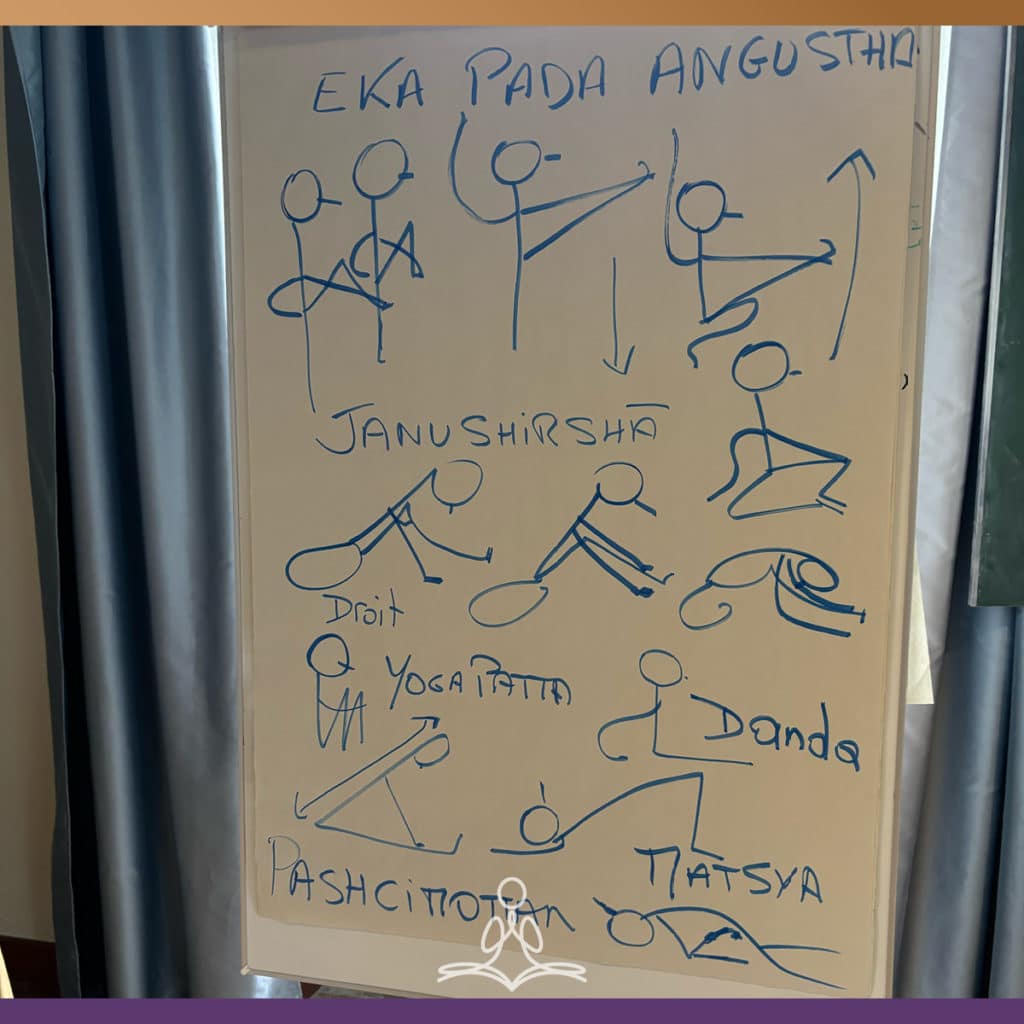 EKA PADA ANGUSTHA
JANUSHiRSHA
Droit
YOGAPATTA
Danda
PASHCiMOTTAN
MATSYA